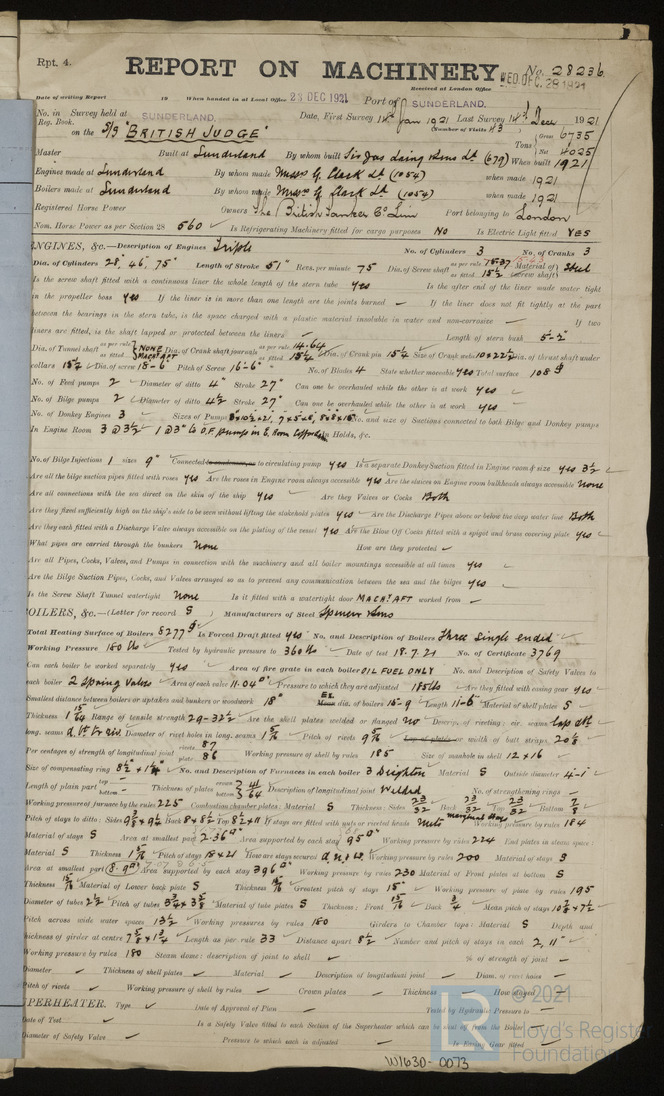 Rpt. 4.
REPORT ON MACHINERY No. 28236
WED. DEC. 28 1921
Date of writing Report 19 When handed in at Local Office 23 DEC 1921 Port of SUNDERLAND. Received at London Office
No. in Survey held at SUNDERLAND. Date, First Survey Jan 1921 Last Survey Dec 1921
Reg. Book. (Number of Visits 43)
on the S/S "BRITISH JUDGE" Tons Gross 6735 Net 4025
Master Built at Sunderland By whom built Sir Jas Laing & Sons Ld (679) When built 1921
Engines made at Sunderland By whom made Messrs G. Clark Ld (1054) when made 1921
Boilers made at Sunderland By whom made Messrs G. Clark Ld (1054) when made 1921
Registered Horse Power Owners The British Tanker Co Lim Port belonging to London
Nom. Horse Power as per Section 28 560 Is Refrigerating Machinery fitted for cargo purposes NO Is Electric Light fitted YES
ENGINES, &c.—Description of Engines Triple No. of Cylinders 3 No. of Cranks 3
Dia. of Cylinders 28", 46", 75" Length of Stroke 51" Revs. per minute 75 Dia. of Screw shaft as per rule as fitted 15½ Material of screw shaft Steel
Is the screw shaft fitted with a continuous liner the whole length of the stern tube yes Is the after end of the liner made water tight
in the propeller boss yes If the liner is in more than one length are the joints burned — If the liner does not fit tightly at the part
between the bearings in the stern tube, is the space charged with a plastic material insoluble in water and non-corrosive — If two
liners are fitted, is the shaft lapped or protected between the liners — Length of stern bush 5-2
Dia. of Tunnel shaft as per rule as fitted NONE MACHY AFT Dia. of Crank shaft journals as per rule 14.64 as fitted 15¼ Dia. of Crank pin 15¼ Size of Crank webs 10x22½ Dia. of thrust shaft under
collars 15½ Dia. of screw 18-6 Pitch of Screw 16-6" No. of Blades 4 State whether moveable yes Total surface 108
No. of Feed pumps 2 Diameter of ditto 4" Stroke 27" Can one be overhauled while the other is at work yes
No. of Bilge pumps 2 Diameter of ditto 4½ Stroke 27" Can one be overhauled while the other is at work yes
No. of Donkey Engines 3 Sizes of Pumps No. and size of Suctions connected to both Bilge and Donkey pumps
In Engine Room 3 @ 3½ 1 @ 3" In Holds, &c.
No. of Bilge Injections 1 sizes 9" Connected to condenser, or to circulating pump yes Is a separate Donkey Suction fitted in Engine room & size yes 3½
Are all the bilge suction pipes fitted with roses yes Are the roses in Engine room always accessible yes Are the sluices on Engine room bulkheads always accessible none
Are all connections with the sea direct on the skin of the ship yes Are they Valves or Cocks Both
Are they fixed sufficiently high on the ship's side to be seen without lifting the stokehold plates yes Are the Discharge Pipes above or below the deep water line Both
Are they each fitted with a Discharge Valve always accessible on the plating of the vessel yes Are the Blow Off Cocks fitted with a spigot and brass covering plate yes
What pipes are carried through the bunkers None How are they protected —
Are all Pipes, Cocks, Valves, and Pumps in connection with the machinery and all boiler mountings accessible at all times yes
Are the Bilge Suction Pipes, Cocks, and Valves arranged so as to prevent any communication between the sea and the bilges yes
Is the Screw Shaft Tunnel watertight None Is it fitted with a watertight door MACHY AFT worked from —
OILERS, &c.—(Letter for record S) Manufacturers of Steel Spencer & Sons
Total Heating Surface of Boilers 8277 Is Forced Draft fitted yes No. and Description of Boilers Three Single ended
Working Pressure 180 lbs Tested by hydraulic pressure to 360 lbs Date of test 18.7.21 No. of Certificate 3769
Can each boiler be worked separately yes Area of fire grate in each boiler OIL FUEL ONLY No. and Description of Safety Valves to
each boiler 2 Spring Valves Area of each valve 11.04 Pressure to which they are adjusted 185 lbs Are they fitted with easing gear yes
Smallest distance between boilers or uptakes and bunkers or woodwork 18" Ex. dia. of boilers 15-9 Length 11-6 Material of shell plates S
Thickness 1 15/64 Range of tensile strength 29-32½ Are the shell plates welded or flanged no Descrip. of riveting: cir. seams lap
long. seams Diameter of rivet holes in long. seams 1 5/16 Pitch of rivets 9 5/16 Lap of plates or width of butt straps 20⅛
Per centages of strength of longitudinal joint rivets 87 plate 86 Working pressure of shell by rules 185 Size of manhole in shell 12 x 16
Size of compensating ring No. and Description of Furnaces in each boiler 3 Deighton Material S Outside diameter 4-1
Length of plain part top bottom Thickness of plates crown bottom 41/64 Description of longitudinal joint Welded No. of strengthening rings —
Working pressure of furnace by the rules 225 Combustion chamber plates: Material S Thickness: Sides 23/32 Back 23/32 Top 23/32 Bottom 7/8
Pitch of stays to ditto: Sides Back Top If stays are fitted with nuts or riveted heads Nuts marginal stays Working pressure by rules 184
Material of stays S Area at smallest part 2.36 Area supported by each stay 95 Working pressure by rules 224 End plates in steam space:
Material S Thickness Pitch of stays 18 x 21 How are stays secured Working pressure by rules 200 Material of stays S
Area at smallest part Area supported by each stay 396 Working pressure by rules 230 Material of Front plates at bottom S
Thickness 15/16 Material of Lower back plate S Thickness Greatest pitch of stays 15" Working pressure of plate by rules 195
Diameter of tubes 2½ Pitch of tubes 3¾ x 3⅝ Material of tube plates S Thickness: Front 15/16 Back ¾ Mean pitch of stays
Pitch across wide water spaces 13½ Working pressures by rules 180 Girders to Chamber tops: Material S Depth and
thickness of girder at centre 7⅝ x 1¾ Length as per rule 33 Distance apart 8½ Number and pitch of stays in each 2, 11"
Working pressure by rules 180 Steam dome: description of joint to shell — % of strength of joint —
Diameter — Thickness of shell plates — Material — Description of longitudinal joint — Diam. of rivet holes —
Pitch of rivets — Working pressure of shell by rules — Crown plates — Thickness — How stayed —
UPERHEATER. Type — Date of Approval of Plan — Tested by Hydraulic Pressure to —
Date of Test — Is a Safety Valve fitted to each Section of the Superheater which can be shut off from the Boiler —
Diameter of Safety Valve — Pressure to which each is adjusted — Is Easing Gear fitted —
© 2021
Lloyd's Register
Foundation
LR
W1630-0073